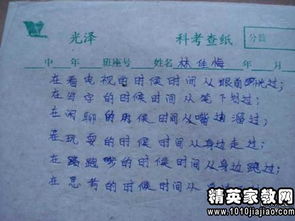 光泽 科考查纸 分数
中 年 班座号 姓名 林佳梅 年 月
在看电视的时候时间从眼前晃过;
在写字的时候时间从笔下划过;
在闲聊的时候时间从嘴边溜过;
在玩耍的时候时间从身边走过;
在跑跑的时候时间从身边跑过;
在思考的时候时间从
精英家教网
www.1010jiajiao.com